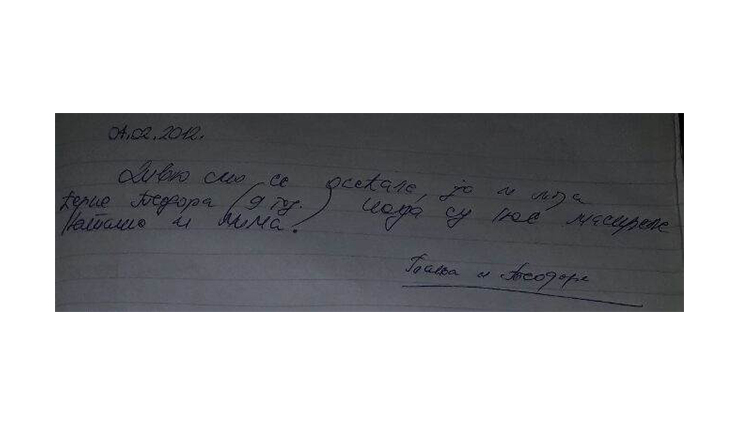 04.02.2012.
Дивно смо се осећале, ја и моја
ћерке Теодора (9 год.) када су нас масирале
Наташа и Мима!
Бранка и Теодора